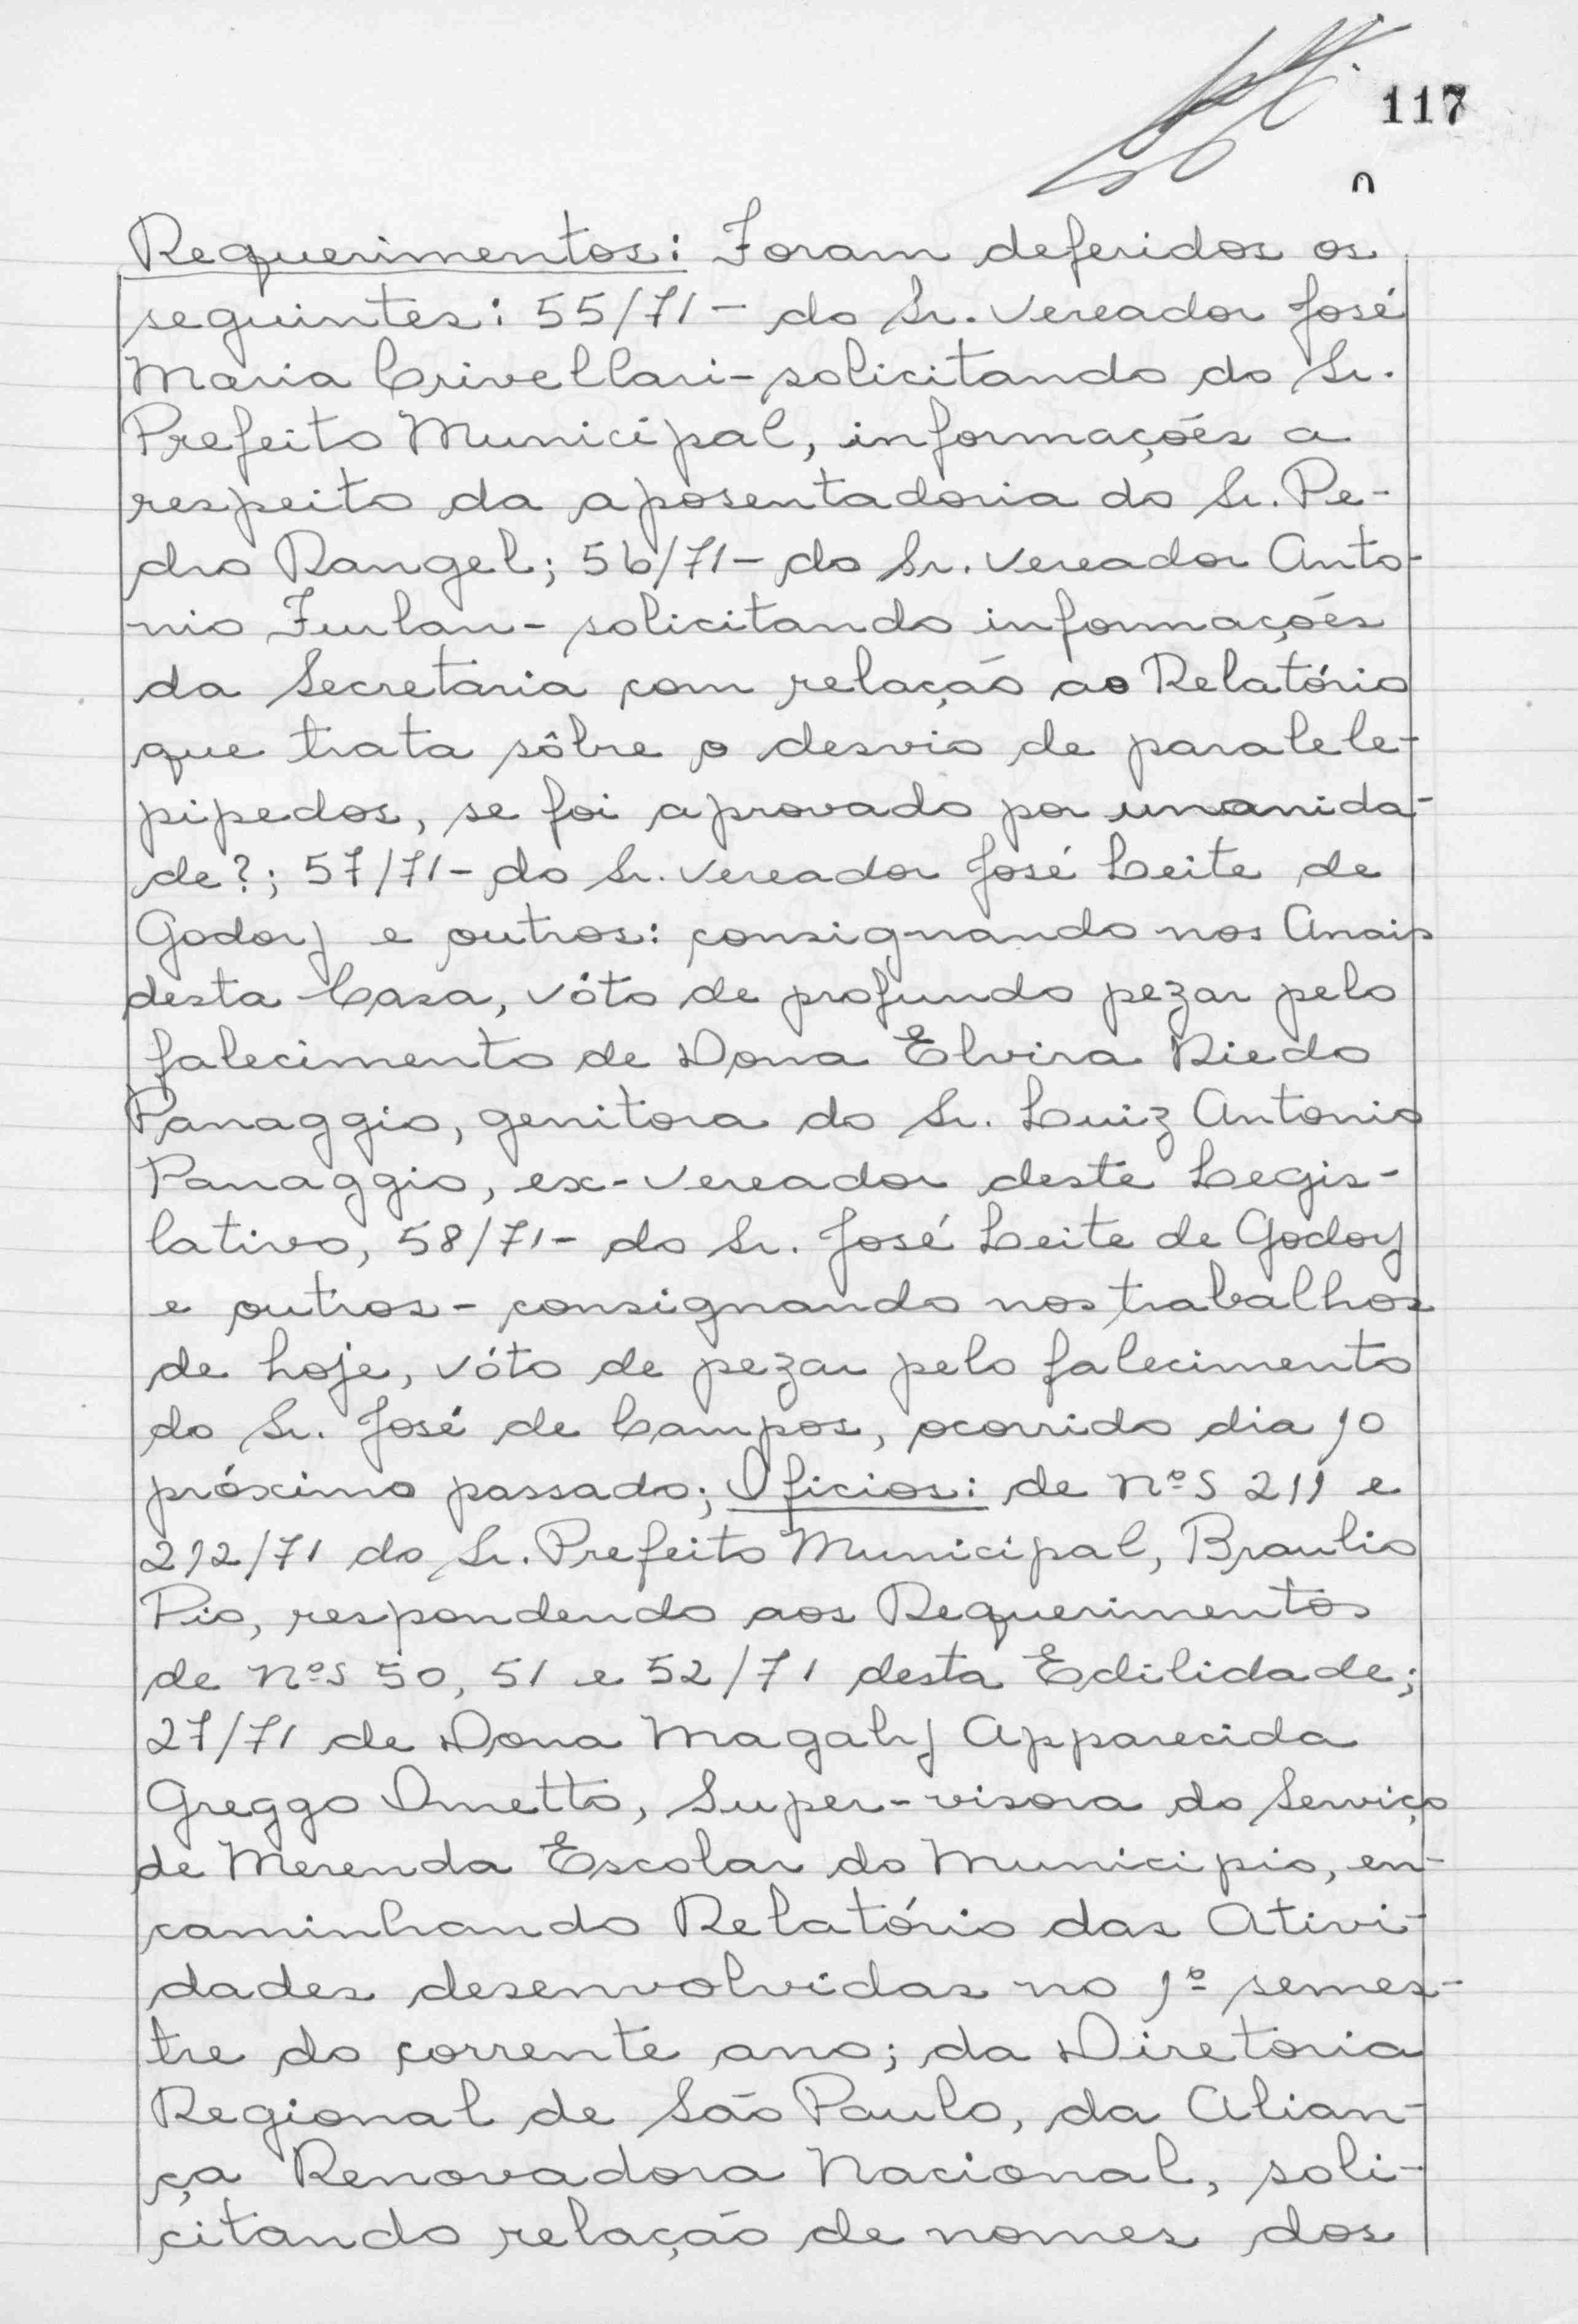 117
Requerimentos: Foram deferidos os
seguintes: 55/71 - do Sr. Vereador José
Maria Crivellari - solicitando do Sr.
Prefeito Municipal, informações a
respeito da aposentadoria do Sr. Pe-
dro Rangel; 56/71 - do Sr. Vereador Anto-
nio Furlan - solicitando informações
da Secretaria com relação ao Relatório
que trata sôbre o desvio de paralele-
pipedos, se foi aprovado por unanida-
de?; 57/71 - do Sr. Vereador José Leite de
Godoy e outros: consignando nos Anais
desta Casa, vóto de profundo pezar pelo
falecimento de Dona Elvira Riedo
Panaggio, genitora do Sr. Luiz Antonio
Panaggio, ex-Vereador deste Legis-
lativo, 58/71 - do Sr. José Leite de Godoy
e outros - consignando nos trabalhos
de hoje, vóto de pezar pelo falecimento
do Sr. José de Campos, ocorrido dia 10
próximo passado; Oficios: de nºs 211 e
212/71 do Sr. Prefeito Municipal, Braulio
Pio, respondendo aos Requerimentos
de nºs 50, 51 e 52/71 desta Edilidade;
27/71 de Dona Magaly Apparecida
Greggo Ometto, Super-visora do Serviço
de Merenda Escolar do Municipio, en-
caminhando Relatório das Ativi-
dades desenvolvidas no 1º semes-
tre do corrente ano; da Diretoria
Regional de São Paulo, da Alian-
ça Renovadora Nacional, soli-
citando relação de nomes dos